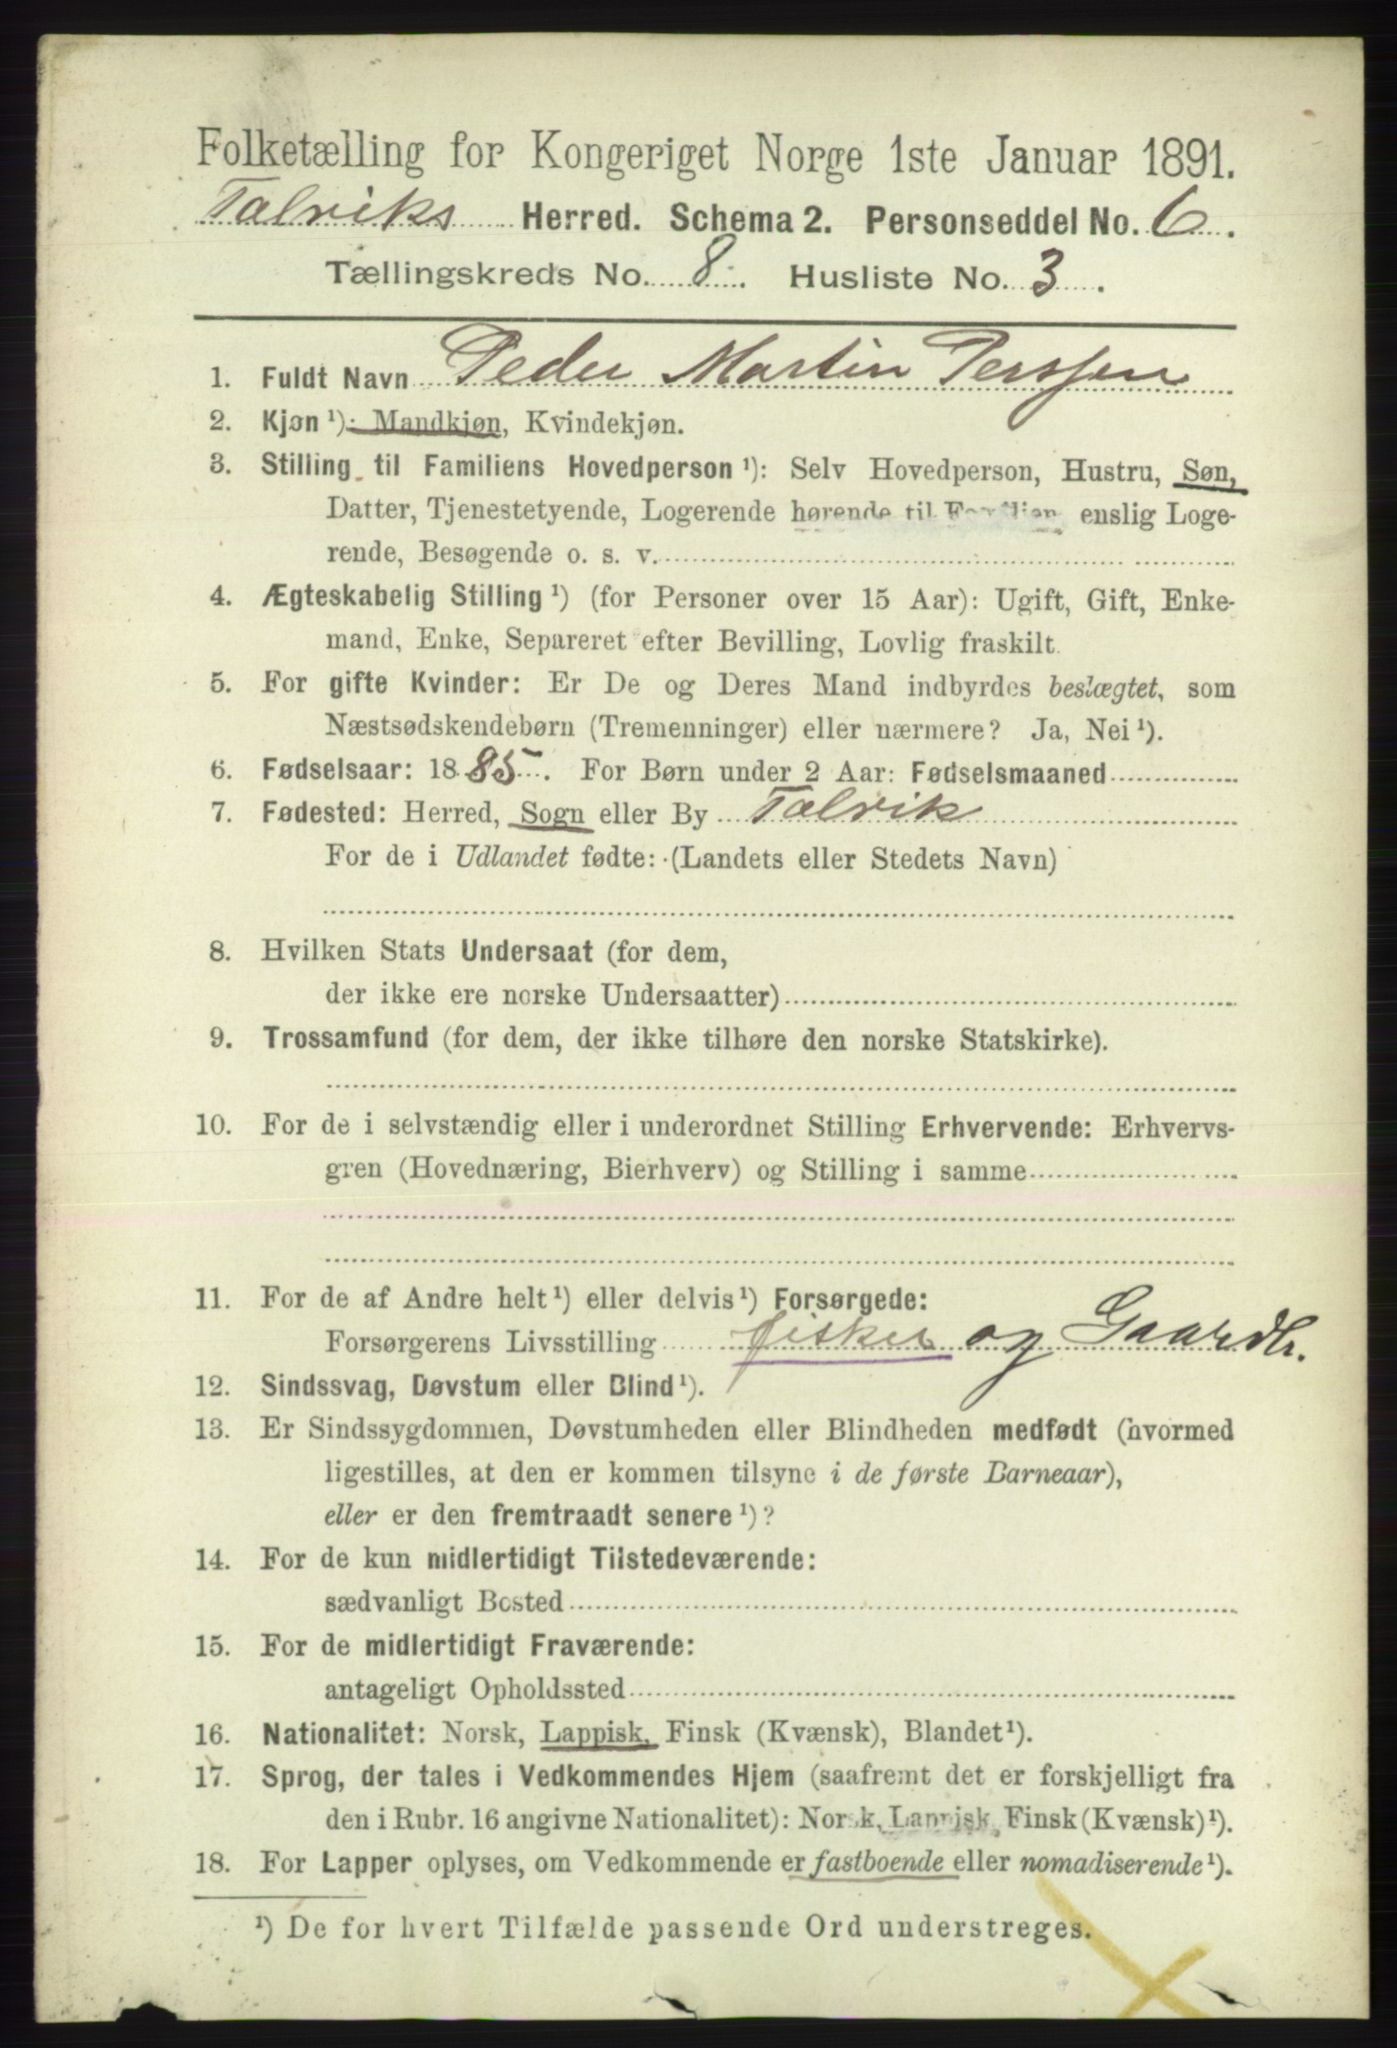 Folketælling for Kongeriget Norge 1ste Januar 1891.
Talviks Herred. Schema 2. Personseddel No. 6.
Tællingskreds No. 8. Husliste No. 3.
1. Fuldt Navn Peder Martin Perssen
2. Kjøn ¹): Mandkjøn, Kvindekjøn.
3. Stilling til Familiens Hovedperson ¹): Selv Hovedperson, Hustru, Søn,
Datter, Tjenestetyende, Logerende hørende til Familien, enslig Loge-
rende, Besøgende o. s. v.
4. Ægteskabelig Stilling ¹) (for Personer over 15 Aar): Ugift, Gift, Enke-
mand, Enke, Separeret efter Bevilling, Lovlig fraskilt.
5. For gifte Kvinder: Er De og Deres Mand indbyrdes beslægtet, som
Næstsødskendebørn (Tremenninger) eller nærmere? Ja, Nei ¹).
6. Fødselsaar: 1885. For Børn under 2 Aar: Fødselsmaaned
7. Fødested: Herred, Sogn eller By Talvik
For de i Udlandet fødte: (Landets eller Stedets Navn)
8. Hvilken Stats Undersaat (for dem,
der ikke ere norske Undersaatter)
9. Trossamfund (for dem, der ikke tilhøre den norske Statskirke).
10. For de i selvstændig eller i underordnet Stilling Erhvervende: Erhvervs-
gren (Hovednæring, Bierhverv) og Stilling i samme
11. For de af Andre helt ¹) eller delvis ¹) Forsørgede:
Forsørgerens Livsstilling fisker og Gaardbr.
12. Sindssvag, Døvstum eller Blind ¹).
13. Er Sindssygdommen, Døvstumheden eller Blindheden medfødt (hvormed
ligestilles, at den er kommen tilsyne i de første Barneaar),
eller er den fremtraadt senere ¹)?
14. For de kun midlertidigt Tilstedeværende:
sædvanligt Bosted
15. For de midlertidigt Fraværende:
antageligt Opholdssted
16. Nationalitet: Norsk, Lappisk, Finsk (Kvænsk), Blandet ¹).
17. Sprog, der tales i Vedkommendes Hjem (saafremt det er forskjelligt fra
den i Rubr. 16 angivne Nationalitet): Norsk, Lappisk, Finsk (Kvænsk) ¹).
18. For Lapper oplyses, om Vedkommende er fastboende eller nomadiserende ¹).
¹) De for hvert Tilfælde passende Ord understreges.